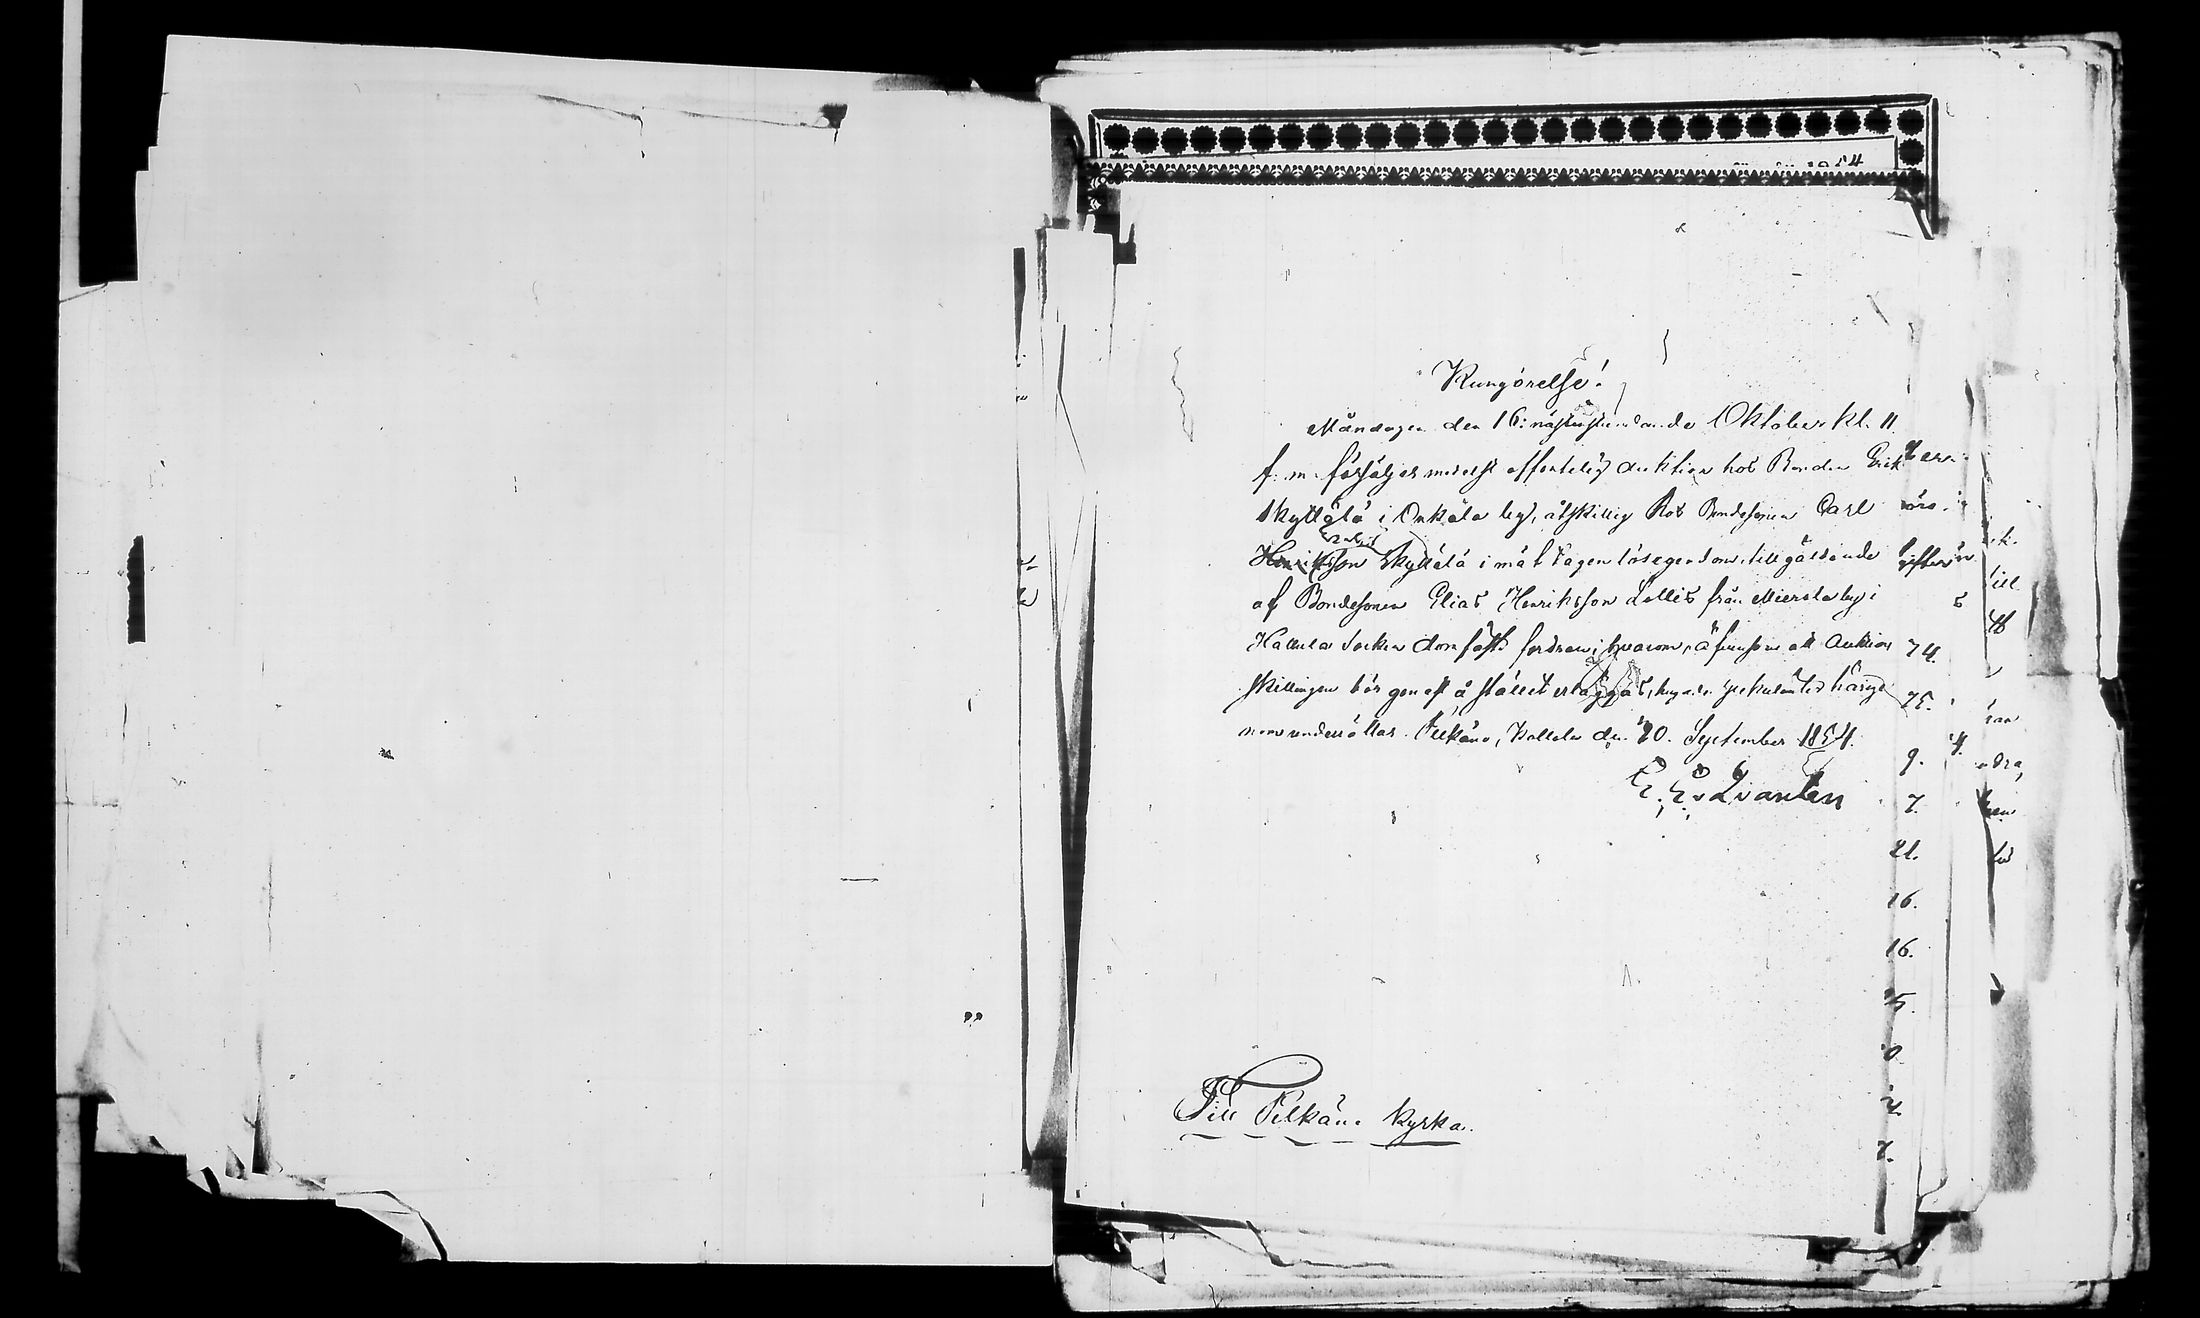 Kungörelse!
Måndagen den 16: nästinstundande Oktober kl. 11
f. m. försäljes medelst offentelig auktion hos Bonden Erik
Skyttälä i Onkala by, åtskillig hos Bondesonen Carl
Henriksson Skyttälä i mät tagen lösegendom, till gäldande
af Bondesonen Elias Henriksson Lellis från Mierola by i
Hattula Socken domfäste fordran; hvarom, äfvensom att Auktions
skillingen bör genast å stället erläggas, hugade spekulanter härige
nom underrättas. Pelkäne, Kollola den 20. September 1854.
E. E. v Qvanten
Till Pelkäne Kyrka.
74.
75.
9.
7.
21.
16.
16.
7.